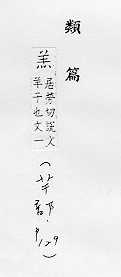 類篇
羔
居勞切說文
羊子也文一
(羊部·P129)